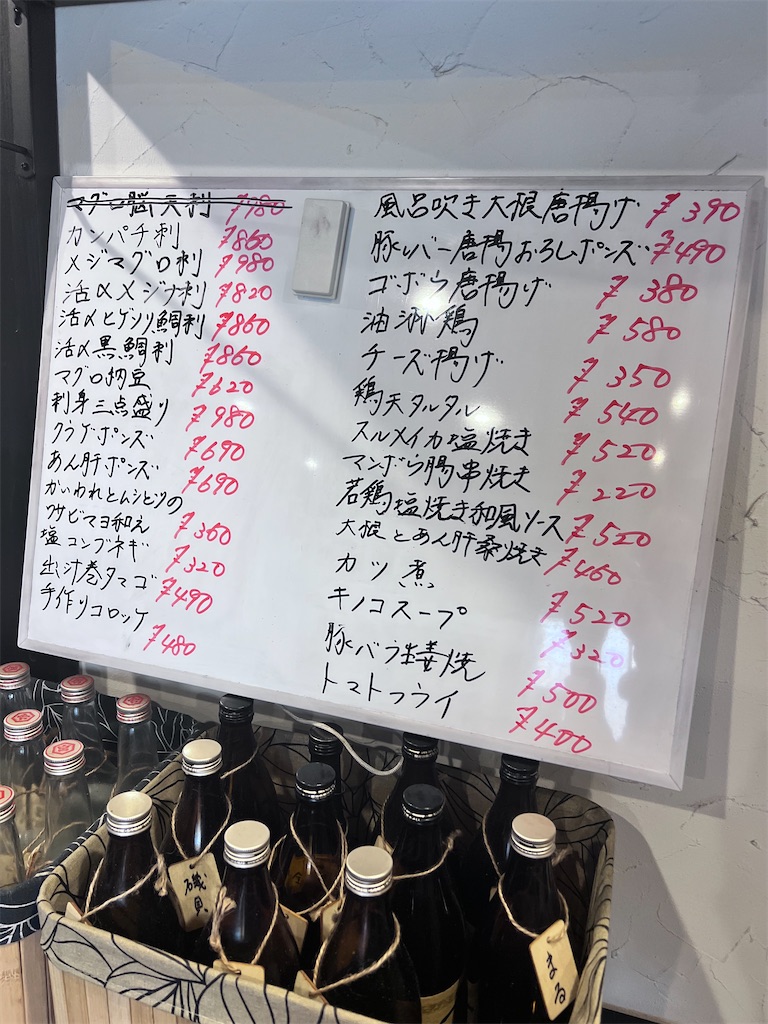 マグロ脳天刺 ¥980
カンパチ刺 ¥860
メジマグロ刺 ¥980
活〆メジナ刺 ¥820
活〆ヒゲソリ鯛刺 ¥860
活〆黒鯛刺 ¥860
マグロ納豆 ¥620
刺身三点盛り ¥980
クラゲポンズ ¥690
あん肝ポンズ ¥690
かいわれとムシドリの
ワサビマヨ和え ¥360
塩コンブネギ ¥320
出し汁巻タマゴ ¥490
手作りコロッケ ¥480
風呂吹き大根唐揚げ ¥390
豚レバー唐揚おろしポンズ ¥490
ゴボウ唐揚げ ¥380
油淋鶏 ¥580
チーズ揚げ ¥350
鶏天タルタル ¥540
スルメイカ塩焼き ¥520
マンボウ腸串焼き ¥220
若鶏塩焼き和風ソース ¥520
大根とあん肝桑焼き ¥460
カツ煮 ¥520
キノコスープ ¥320
豚バラ生姜焼 ¥500
トマトフライ ¥400
磯貝
まる